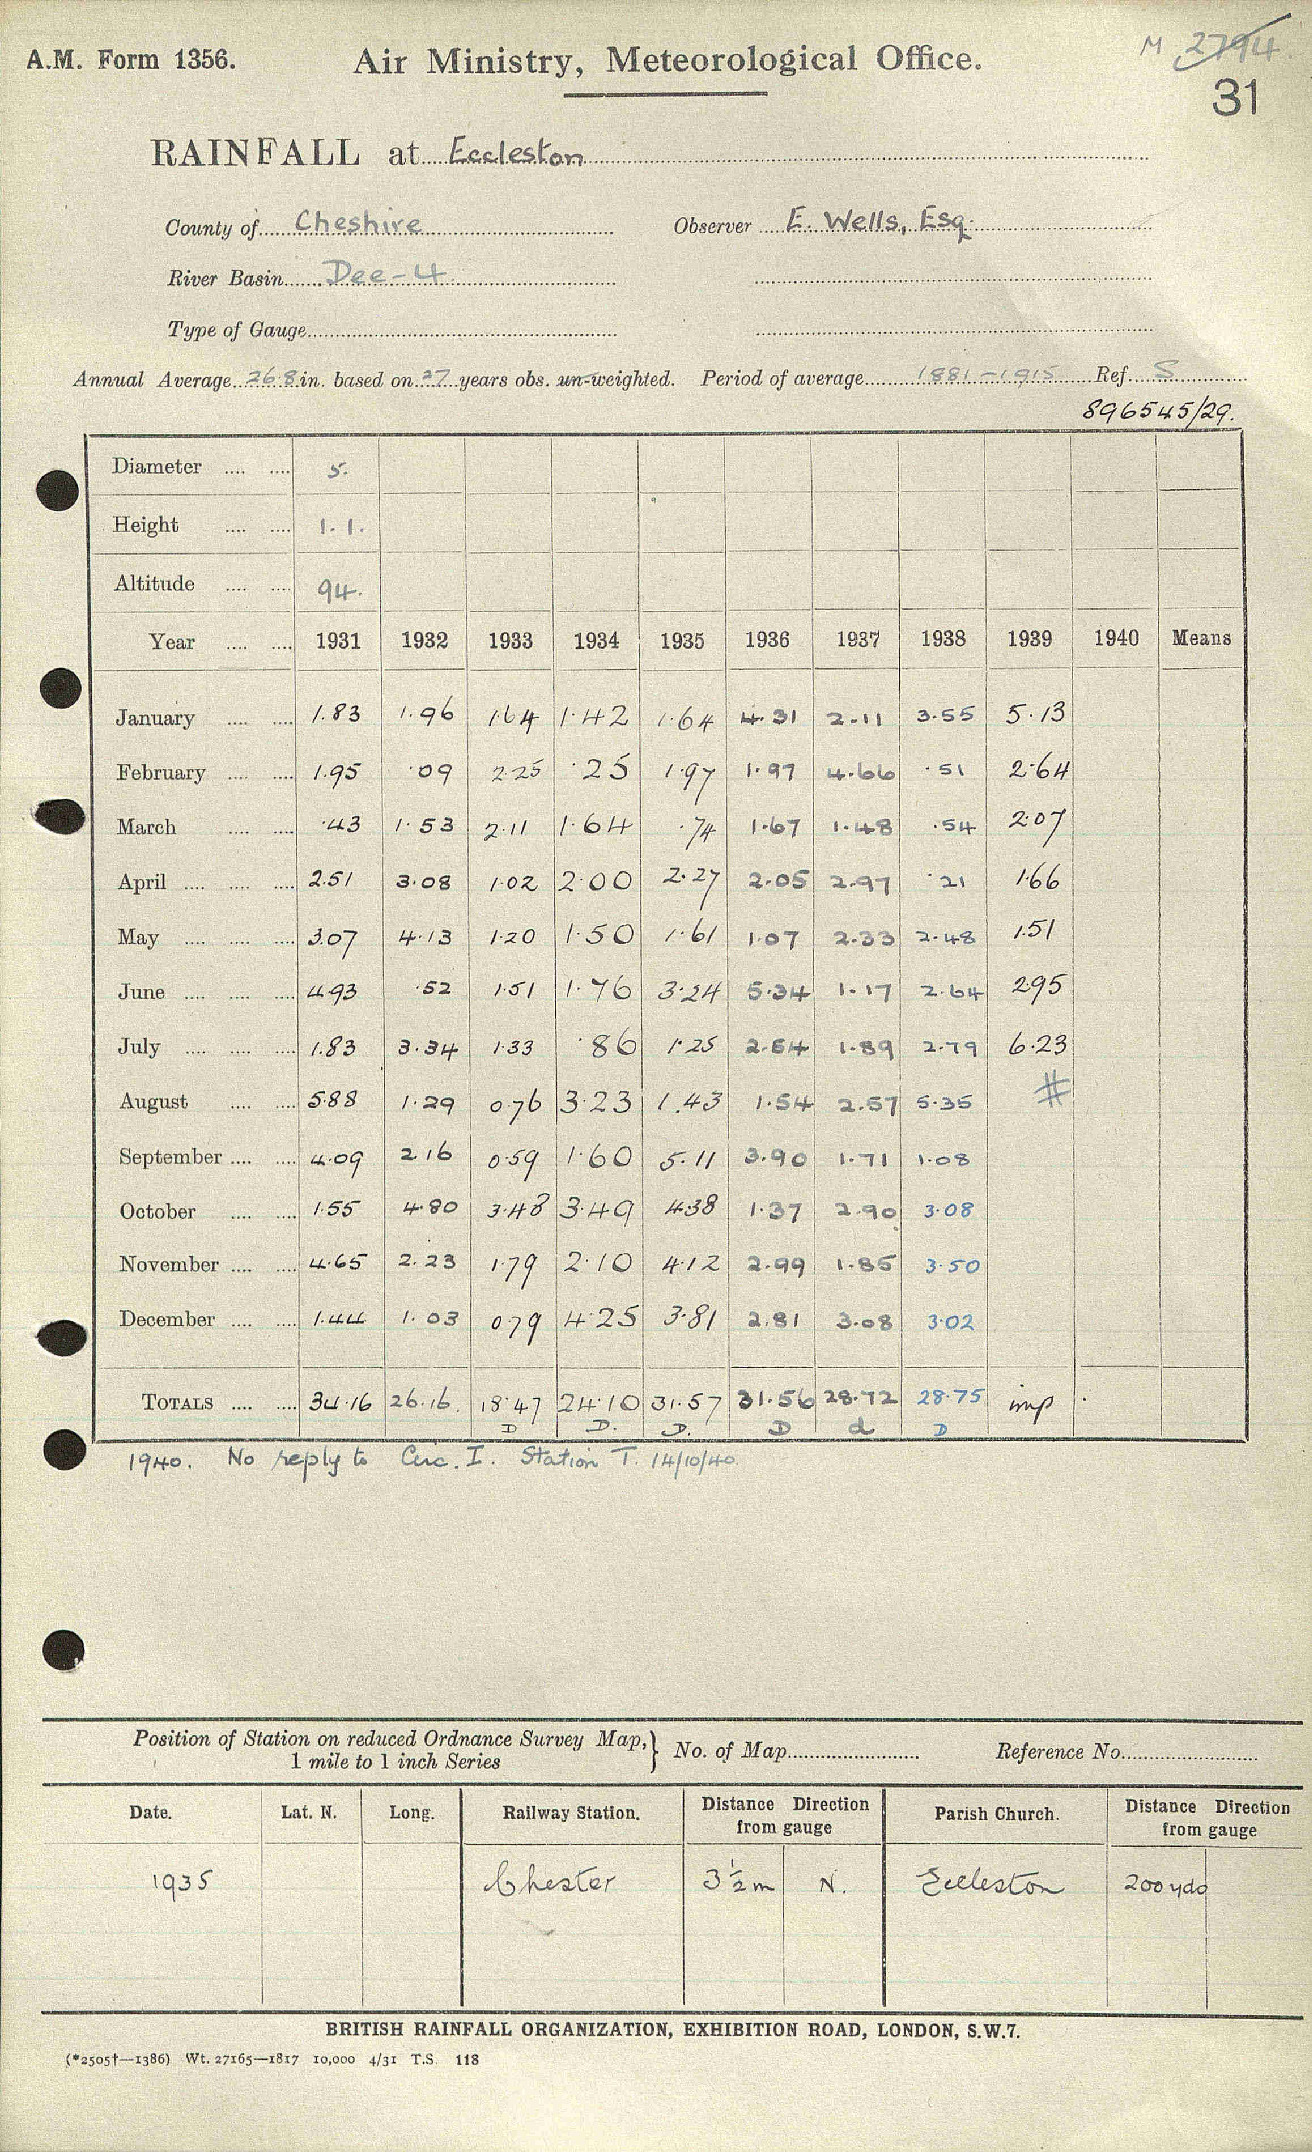 A.M. Form 1356. Air Ministry, Meteorological Office. M 2794
31
RAINFALL at Eccleston
County of Cheshire Observer E. Wells, Esq.
River Basin Dee-4
Type of Gauge
Annual Average 26.8 in. based on 27 years obs. un-weighted. Period of average 1881-1915 Ref. S
896545/29.
Diameter 5.
Height 1.1.
Altitude 94.
Year 1931 1932 1933 1934 1935 1936 1937 1938 1939 1940 Means
January 1.83 1.96 1.64 1.42 1.64 4.31 2.11 3.55 5.13
February 1.95 .09 2.25 .25 1.97 1.97 4.66 .51 2.64
March .43 1.53 2.11 1.64 .74 1.67 1.48 .54 2.07
April 2.51 3.08 1.02 2.00 2.27 2.05 2.97 .21 1.66
May 3.07 4.13 1.20 1.50 1.61 1.07 2.33 2.48 1.51
June 4.93 .52 1.51 1.76 3.24 5.34 1.17 2.64 2.95
July 1.83 3.34 1.33 .86 1.25 2.54 1.89 2.79 6.23
August 5.88 1.29 0.76 3.23 1.43 1.54 2.57 5.35 #
September 4.09 2.16 0.59 1.60 5.11 3.90 1.71 1.08
October 1.55 4.80 3.48 3.49 4.38 1.37 2.90 3.08
November 4.65 2.23 1.79 2.10 4.12 2.99 1.85 3.50
December 1.44 1.03 0.79 4.25 3.81 2.81 3.08 3.02
TOTALS 34.16 26.16 18.47 24.10 31.57 31.56 28.72 28.75 imp
D D. D. D d D
1940. No reply to Circ. I. Station T. 14/10/40.
Position of Station on reduced Ordnance Survey Map, 1 mile to 1 inch Series } No. of Map Reference No.
Date. Lat. N. Long. Railway Station. Distance Direction from gauge Parish Church. Distance Direction from gauge
1935 Chester 3½m N. Eccleston 200 yds
BRITISH RAINFALL ORGANIZATION, EXHIBITION ROAD, LONDON, S.W.7.
(*2505†—1386) Wt. 27165—1817 10,000 4/31 T.S. 118